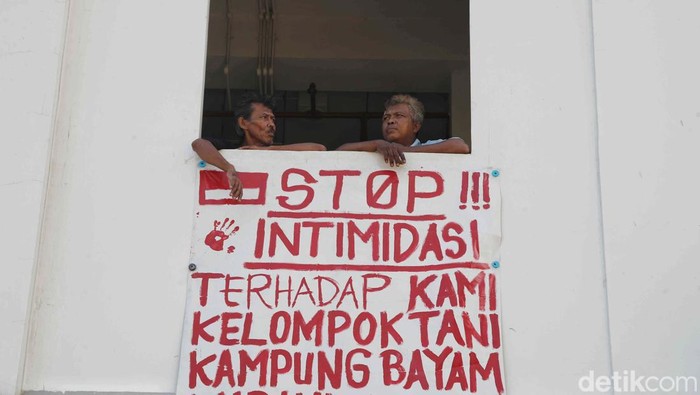 STOP!!!
INTIMIDASI
TERHADAP KAMI
KELOMPOK TANI
KAMPUNG BAYAM
detikcom